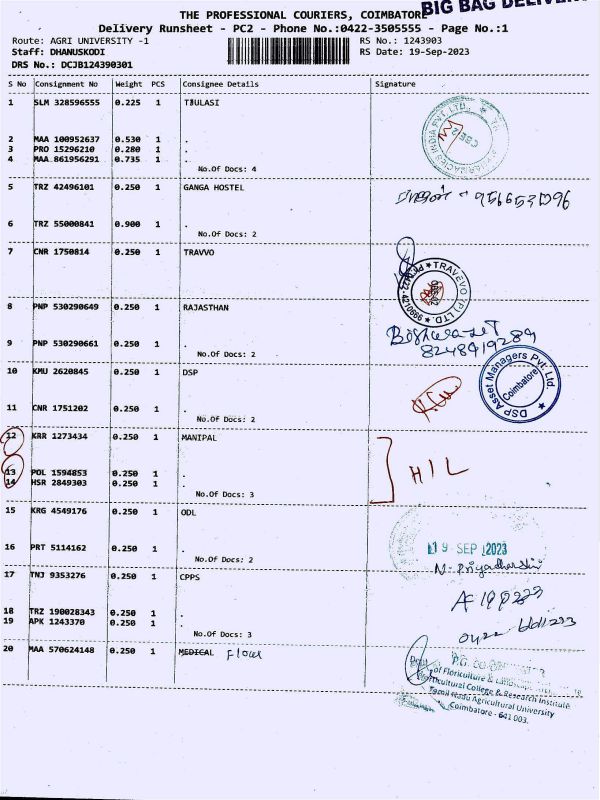 BIG BAG DELIVER
THE PROFESSIONAL COURIERS, COIMBATORE
Delivery Runsheet - PC2 - Phone No.:0422-3505555 - Page No.:1
Route: AGRI UNIVERSITY -1
RS No.: 1243903
Staff: DHANUSKODI
RS Date: 19-Sep-2023
DRS No.: DCJB124390301
S No Consignment No Weight PCS Consignee Details Signature
1 SLM 328596555 0.225 1 TIULASI
2 MAA 100952637 0.530 1 .
3 PRO 15296210 0.280 1 .
4 MAA 861956291 0.735 1 .
No.Of Docs: 4
INDIA PVT. LTD.
CBE 2
5 TRZ 42496101 0.250 1 GANGA HOSTEL
6 TRZ 55000841 0.900 1 .
No.Of Docs: 2
7 CNR 1750814 0.250 1 TRAVVO
TRAVEVO (P) LTD.
8 PNP 530290649 0.250 1 RAJASTHAN
9 PNP 530290661 0.250 1 .
No.Of Docs: 2
8248919289
10 KMU 2620845 0.250 1 DSP
11 CNR 1751202 0.250 1 .
No.Of Docs: 2
DSP Asset Managers Pvt. Ltd.
Coimbatore
12 KRR 1273434 0.250 1 MANIPAL
13 POL 1594853 0.250 1 .
14 HSR 2849303 0.250 1 .
No.Of Docs: 3
HIL
15 KRG 4549176 0.250 1 ODL
16 PRT 5114162 0.250 1 .
No.Of Docs: 2
19 SEP 2023
N. Priyadharshini
17 TNJ 9353276 0.250 1 CPPS
18 TRZ 190028343 0.250 1 .
19 APK 1243370 0.250 1 .
No.Of Docs: 3
0422 6611233
20 MAA 570624148 0.250 1 MEDICAL Flower
of Floriculture &
Horticultural College & Research Institute
Tamil Nadu Agricultural University
Coimbatore - 641 003.